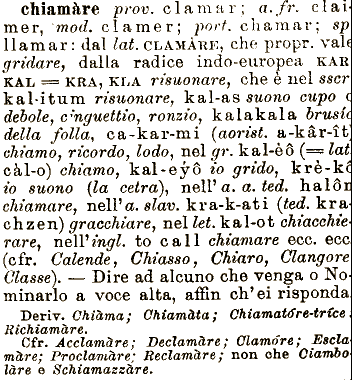 chiamàre prov. clamar; a. fr. clai-
mer, mod. clamer; port. chamar; sp
llamar: dal lat. CLAMÀRE, che propr. vale
gridare, dalla radice indo-europea KAR
KAL = KRA, KLA risuonare, che è nel sscr
kal-itum risuonare, kal-as suono cupo o
debole, c'nguettio, ronzio, kalakala brusio
della folla, ca-kar-mi (aorist. a-kâr-ît)
chiamo, ricordo, lodo, nel gr. kal-èô (= lat
càl-o) chiamo, kal-eýô io grido, krè-kô
io suono (la cetra), nell'a. a. ted. halôn
chiamare, nell'a. slav. kra-k-ati (ted. kra-
chzen) gracchiare, nel let. kal-ot chiacchie-
rare, nell'ingl. to call chiamare ecc. ecc.
(cfr. Calende, Chiasso, Chiaro, Clangore
Classe). — Dire ad alcuno che venga o No-
minarlo a voce alta, affin ch'ei risponda
Deriv. Chiàma; Chiamàta; Chiamatóre-tríce.
Richiamàre.
Cfr. Acclamàre; Declamàre; Clamóre; Escla-
màre; Proclamàre; Reclamàre; non che Ciambo-
làre e Schiamazzàre.